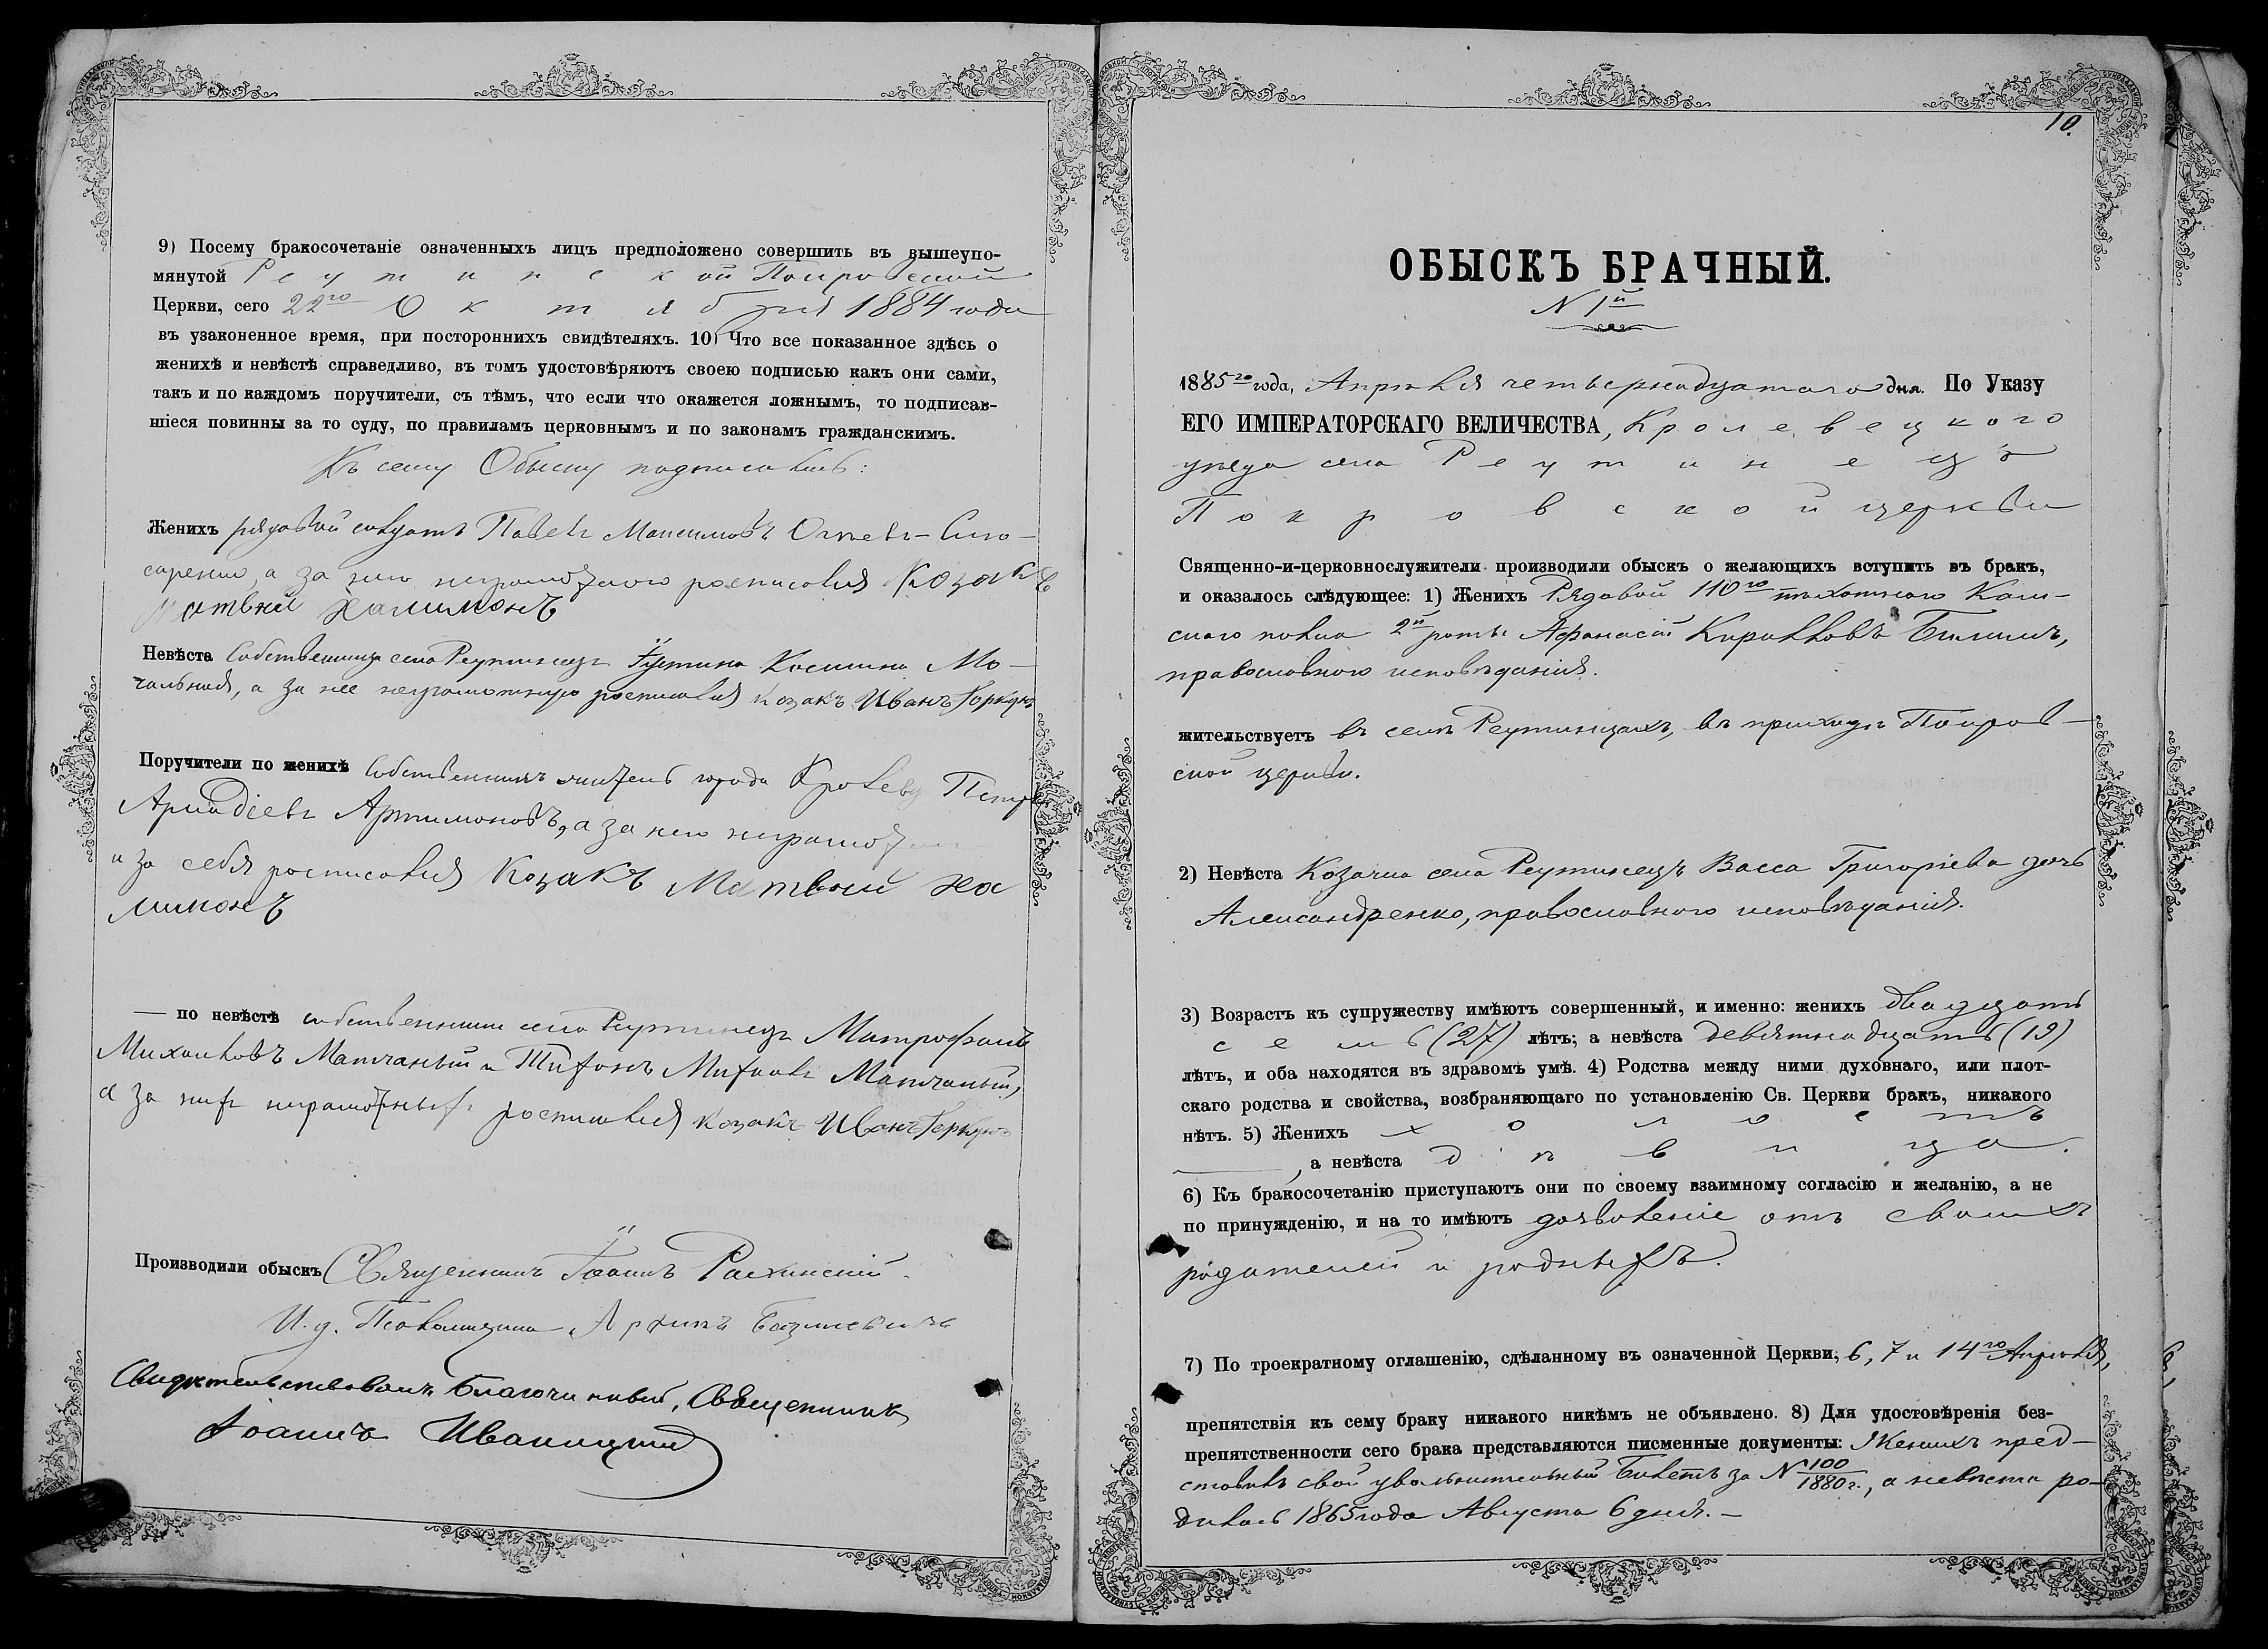 9) Посему бракосочетаніе означенныхъ лицъ предположено совершить въ вышеупо-
мянутой Реутинской Покровской
Церкви, сего 22го Октября 1884 года
въ узаконенное время, при постороннихъ свидѣтеляхъ. 10) Что все показанное здѣсь о
женихѣ и невѣстѣ справедливо, въ томъ удостовѣряютъ своею подписью какъ они сами,
такъ и по каждомъ поручители, съ тѣмъ, что если что окажется ложнымъ, то подписав-
шіеся повинны за то суду, по правиламъ церковнымъ и по законамъ гражданскимъ.
Къ сему Обыску подписались:
Женихъ рядовой солдатъ Павелъ Максимовъ
а за него неграмотного росписался Козакъ
Матвѣй Халимонъ
Невѣста Собственница села Реутинецъ Іустина Косьмина Мо-
чальная, а за нее неграмотную росписался козакъ Иванъ
Поручители по женихѣ Собственникъ житель города Кролевца Петръ
Аркадіевъ Артимоновъ, а за него неграмот
и за себя росписался Козакъ Матвѣй Ха
лимонъ
— по невѣстѣ собственники села Реутинецъ Митрофанъ
Михайловъ Мопчаный и Тихонъ Мопчаный,
а за нихъ неграмотныхъ росписался козакъ Иванъ
Производили обыскъ Священникъ Іоаннъ
И. д. Псаломщика
Свидѣтельствовалъ Благочинный, Священникъ
Іоаннъ Иваницкій
10.
ОБЫСКЪ БРАЧНЫЙ.
N 1й
1885го года, Апрѣля четырнадцатаго дня. По Указу
ЕГО ИМПЕРАТОРСКАГО ВЕЛИЧЕСТВА, Кролевецкого
уѣзда села Реутинецъ
Покровской церкви
Священно-и-церковнослужители производили обыскъ о желающихъ вступить въ бракъ,
и оказалось слѣдующее: 1) Женихъ Рядовой 110го пѣхотного Кам-
ского полка 2й роты Афанасій Кирилловъ
православного исповѣданія.
жительствуетъ въ селѣ Реутинцахъ, въ приходѣ Покров-
ской церкви.
2) Невѣста Козачка села Реутинецъ Васса Григоріева дочь
Александренко, православного исповѣданія.
3) Возрастъ къ супружеству имѣютъ совершенный, и именно: женихъ двадцать
семь (27) лѣтъ; а невѣста девятнадцать (19)
лѣтъ, и оба находятся въ здравомъ умѣ. 4) Родства между ними духовнаго, или плот-
скаго родства и свойства, возбраняющаго по установленію Св. Церкви бракъ, никакого
нѣтъ. 5) Женихъ холостъ
, а невѣста дѣвица.
6) Къ бракосочетанію приступаютъ они по своему взаимному согласію и желанію, а не
по принужденію, и на то имѣютъ дозволеніе отъ своихъ
родителей и родныхъ.
7) По троекратному оглашенію, сдѣланному въ означенной Церкви, 6, 7 и 14го Апрѣля,
препятствія къ сему браку никакого никѣмъ не объявлено. 8) Для удостовѣренія без-
препятственности сего брака представляются писменные документы: Женихъ пред-
ставилъ свой увольнительный Билетъ за N 100/1880 г., а невѣста ро-
дилась 1865 года Августа 6 дня. —